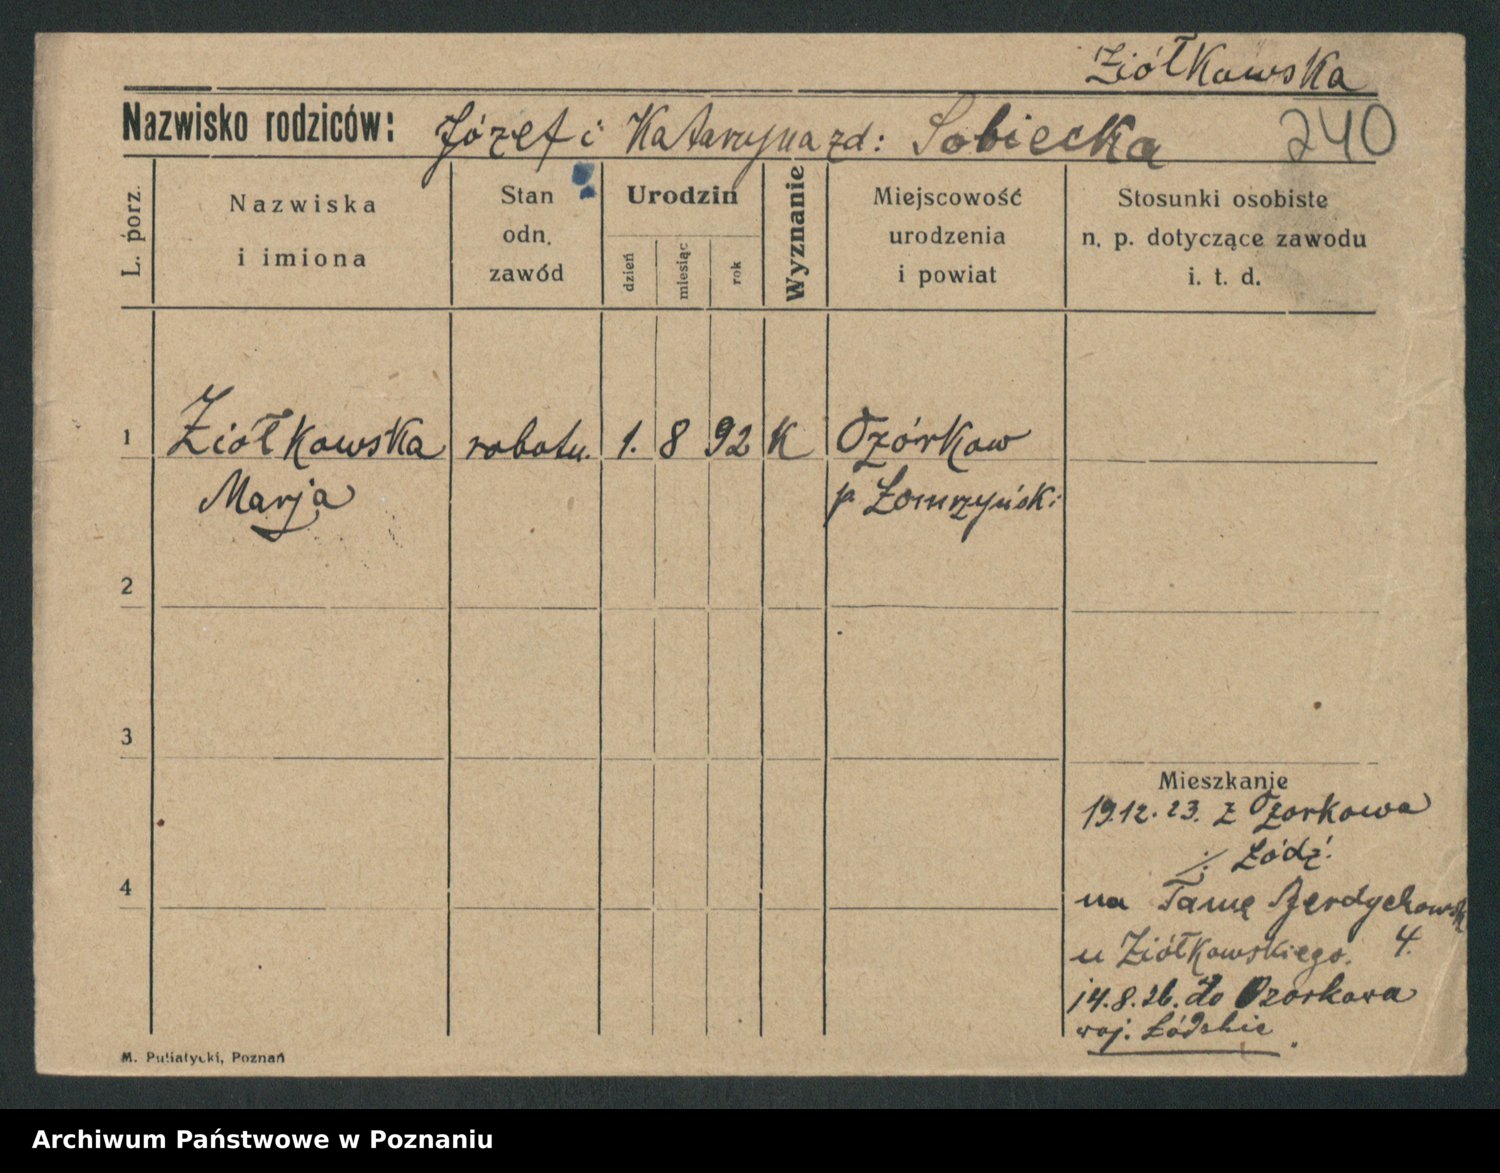 Ziółkowska
Nazwisko rodziców: Józef i Katarzyna zd: Sobiecka 240
L. porz.
Nazwiska
i imiona
Stan
odn.
zawód
Urodzin
dzień
miesiąc
rok
Wyznanie
Miejscowość
urodzenia
i powiat
Stosunki osobiste
n. p. dotyczące zawodu
i. t. d.
1 Ziołkowska robotn. 1. 8 92 K Ozórkow
Marja p Łomrzyński
2
3
4
Mieszkanie
19.12.23. z Ozorkowa
Łódź.
na Tamę Berdychowsk
u Ziółkowskiego. 4.
14.8.26. do Ozorkowa
woj. Łódzkie
M. Putiatycki, Poznań
Archiwum Państwowe w Poznaniu